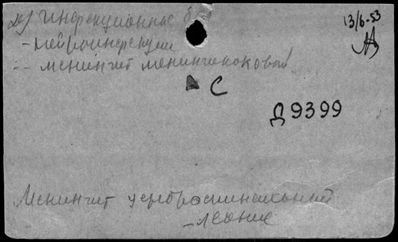 2/ Инфекционные б-ни
13/6-53
- нейроинфекции
-- менингит менингококовый
С
Д 9399
Менингит цереброспинальный
- лечение